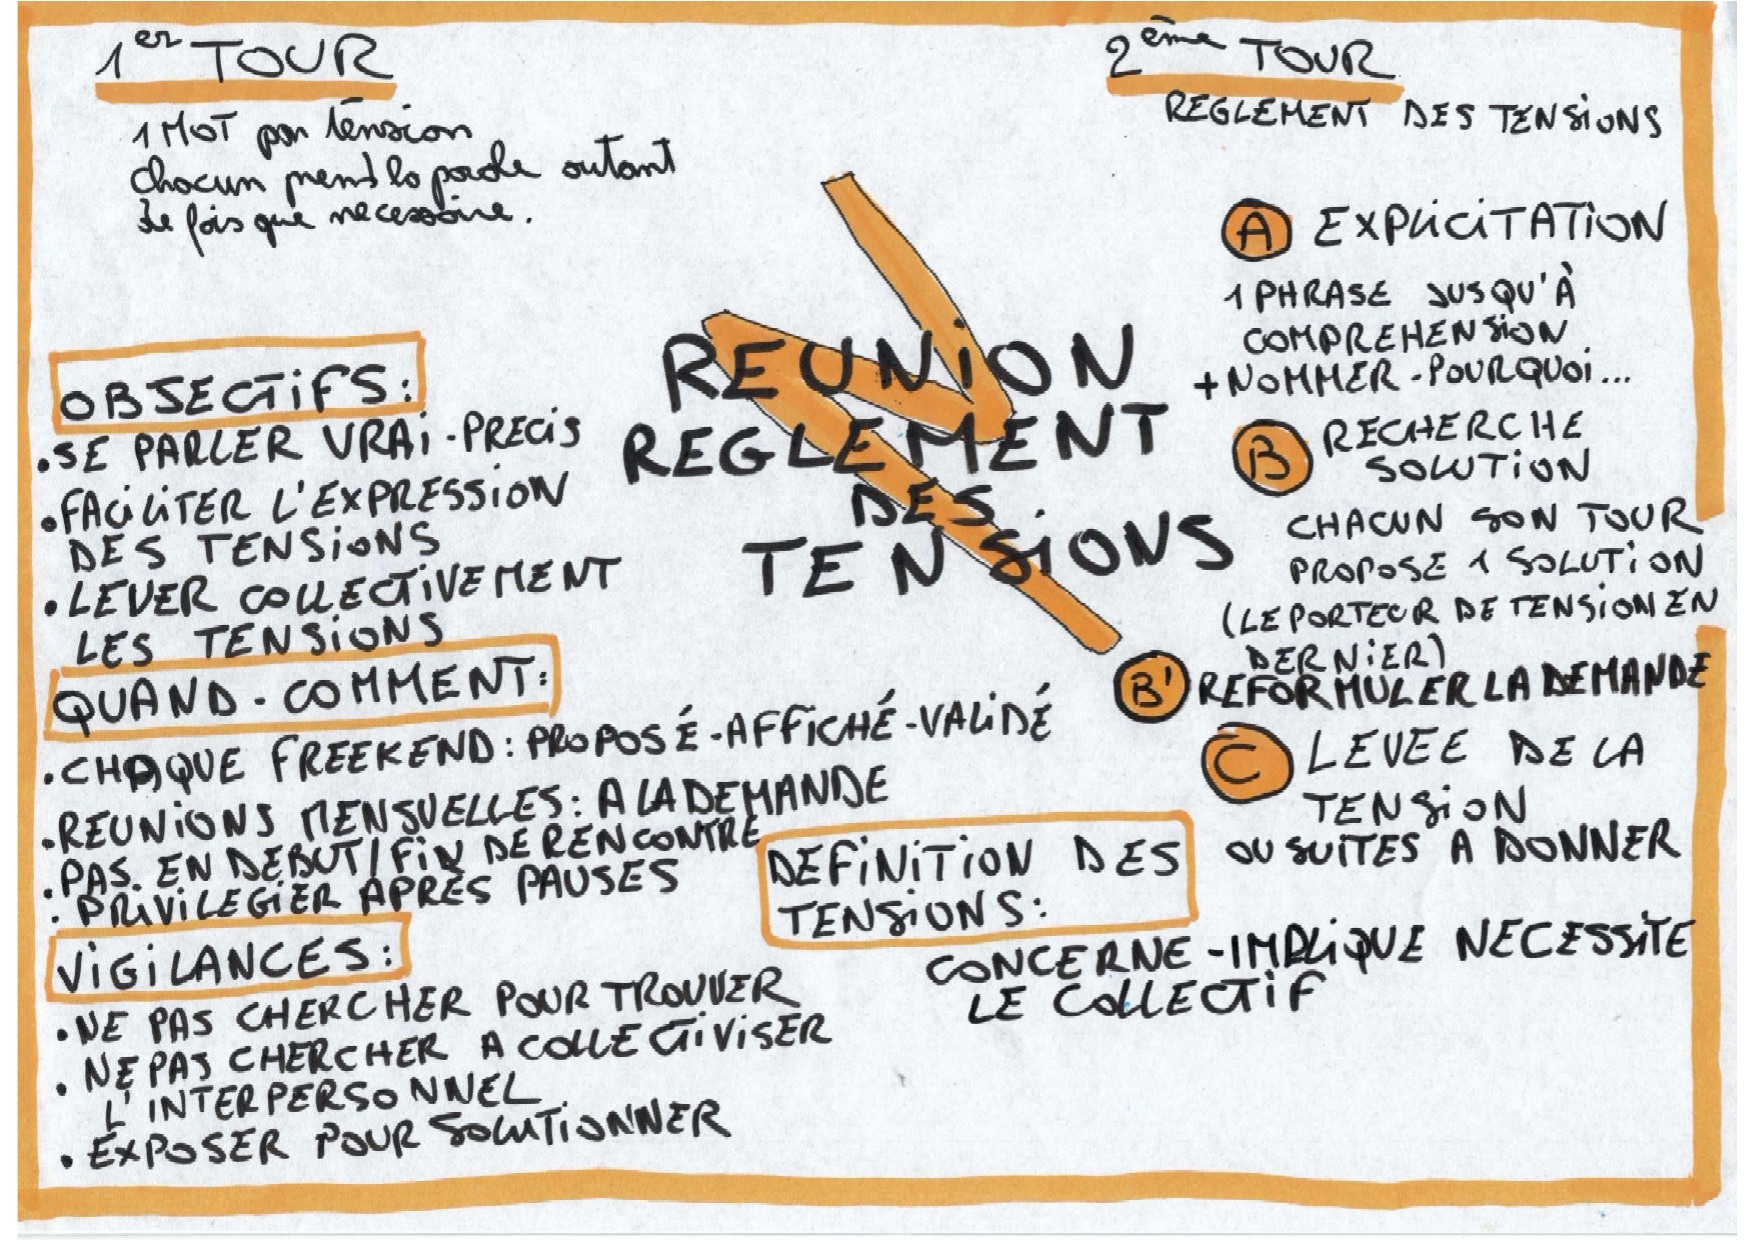 1er TOUR
1 MOT par tension
chacun prend la parole autant
de fois que necessaire.
OBJECTIFS:
.SE PARLER VRAI-PRECIS
.FACILITER L'EXPRESSION
DES TENSIONS
.LEVER COLLECTIVEMENT
LES TENSIONS
QUAND-COMMENT:
.CHAQUE FREEKEND: PROPOSÉ-AFFICHÉ-VALIDÉ
.REUNIONS MENSUELLES: A LA DEMANDE
.PAS EN DEBUT/FIN DE RENCONTRE
. PRIVILEGIER APRÈS PAUSES
VIGILANCES:
.NE PAS CHERCHER POUR TROUVER
. NE PAS CHERCHER A COLLECTIVISER
L'INTERPERSONNEL
. EXPOSER POUR SOLUTIONNER
REUNION
REGLEMENT
DES
TENSIONS
2ème TOUR
REGLEMENT DES TENSIONS
A EXPLICITATION
1 PHRASE JUSQU'À
COMPREHENSION
+ NOMMER-POURQUOI...
B RECHERCHE
SOLUTION
CHACUN SON TOUR
PROPOSE 1 SOLUTION
(LE PORTEUR DE TENSION EN
DERNIER)
B' REFORMULER LA DEMANDE
C LEVEE DE LA
TENSION
OU SUITES A DONNER
DEFINITION DES
TENSIONS:
CONCERNE-IMPLIQUE NECESSITE
LE COLLECTIF